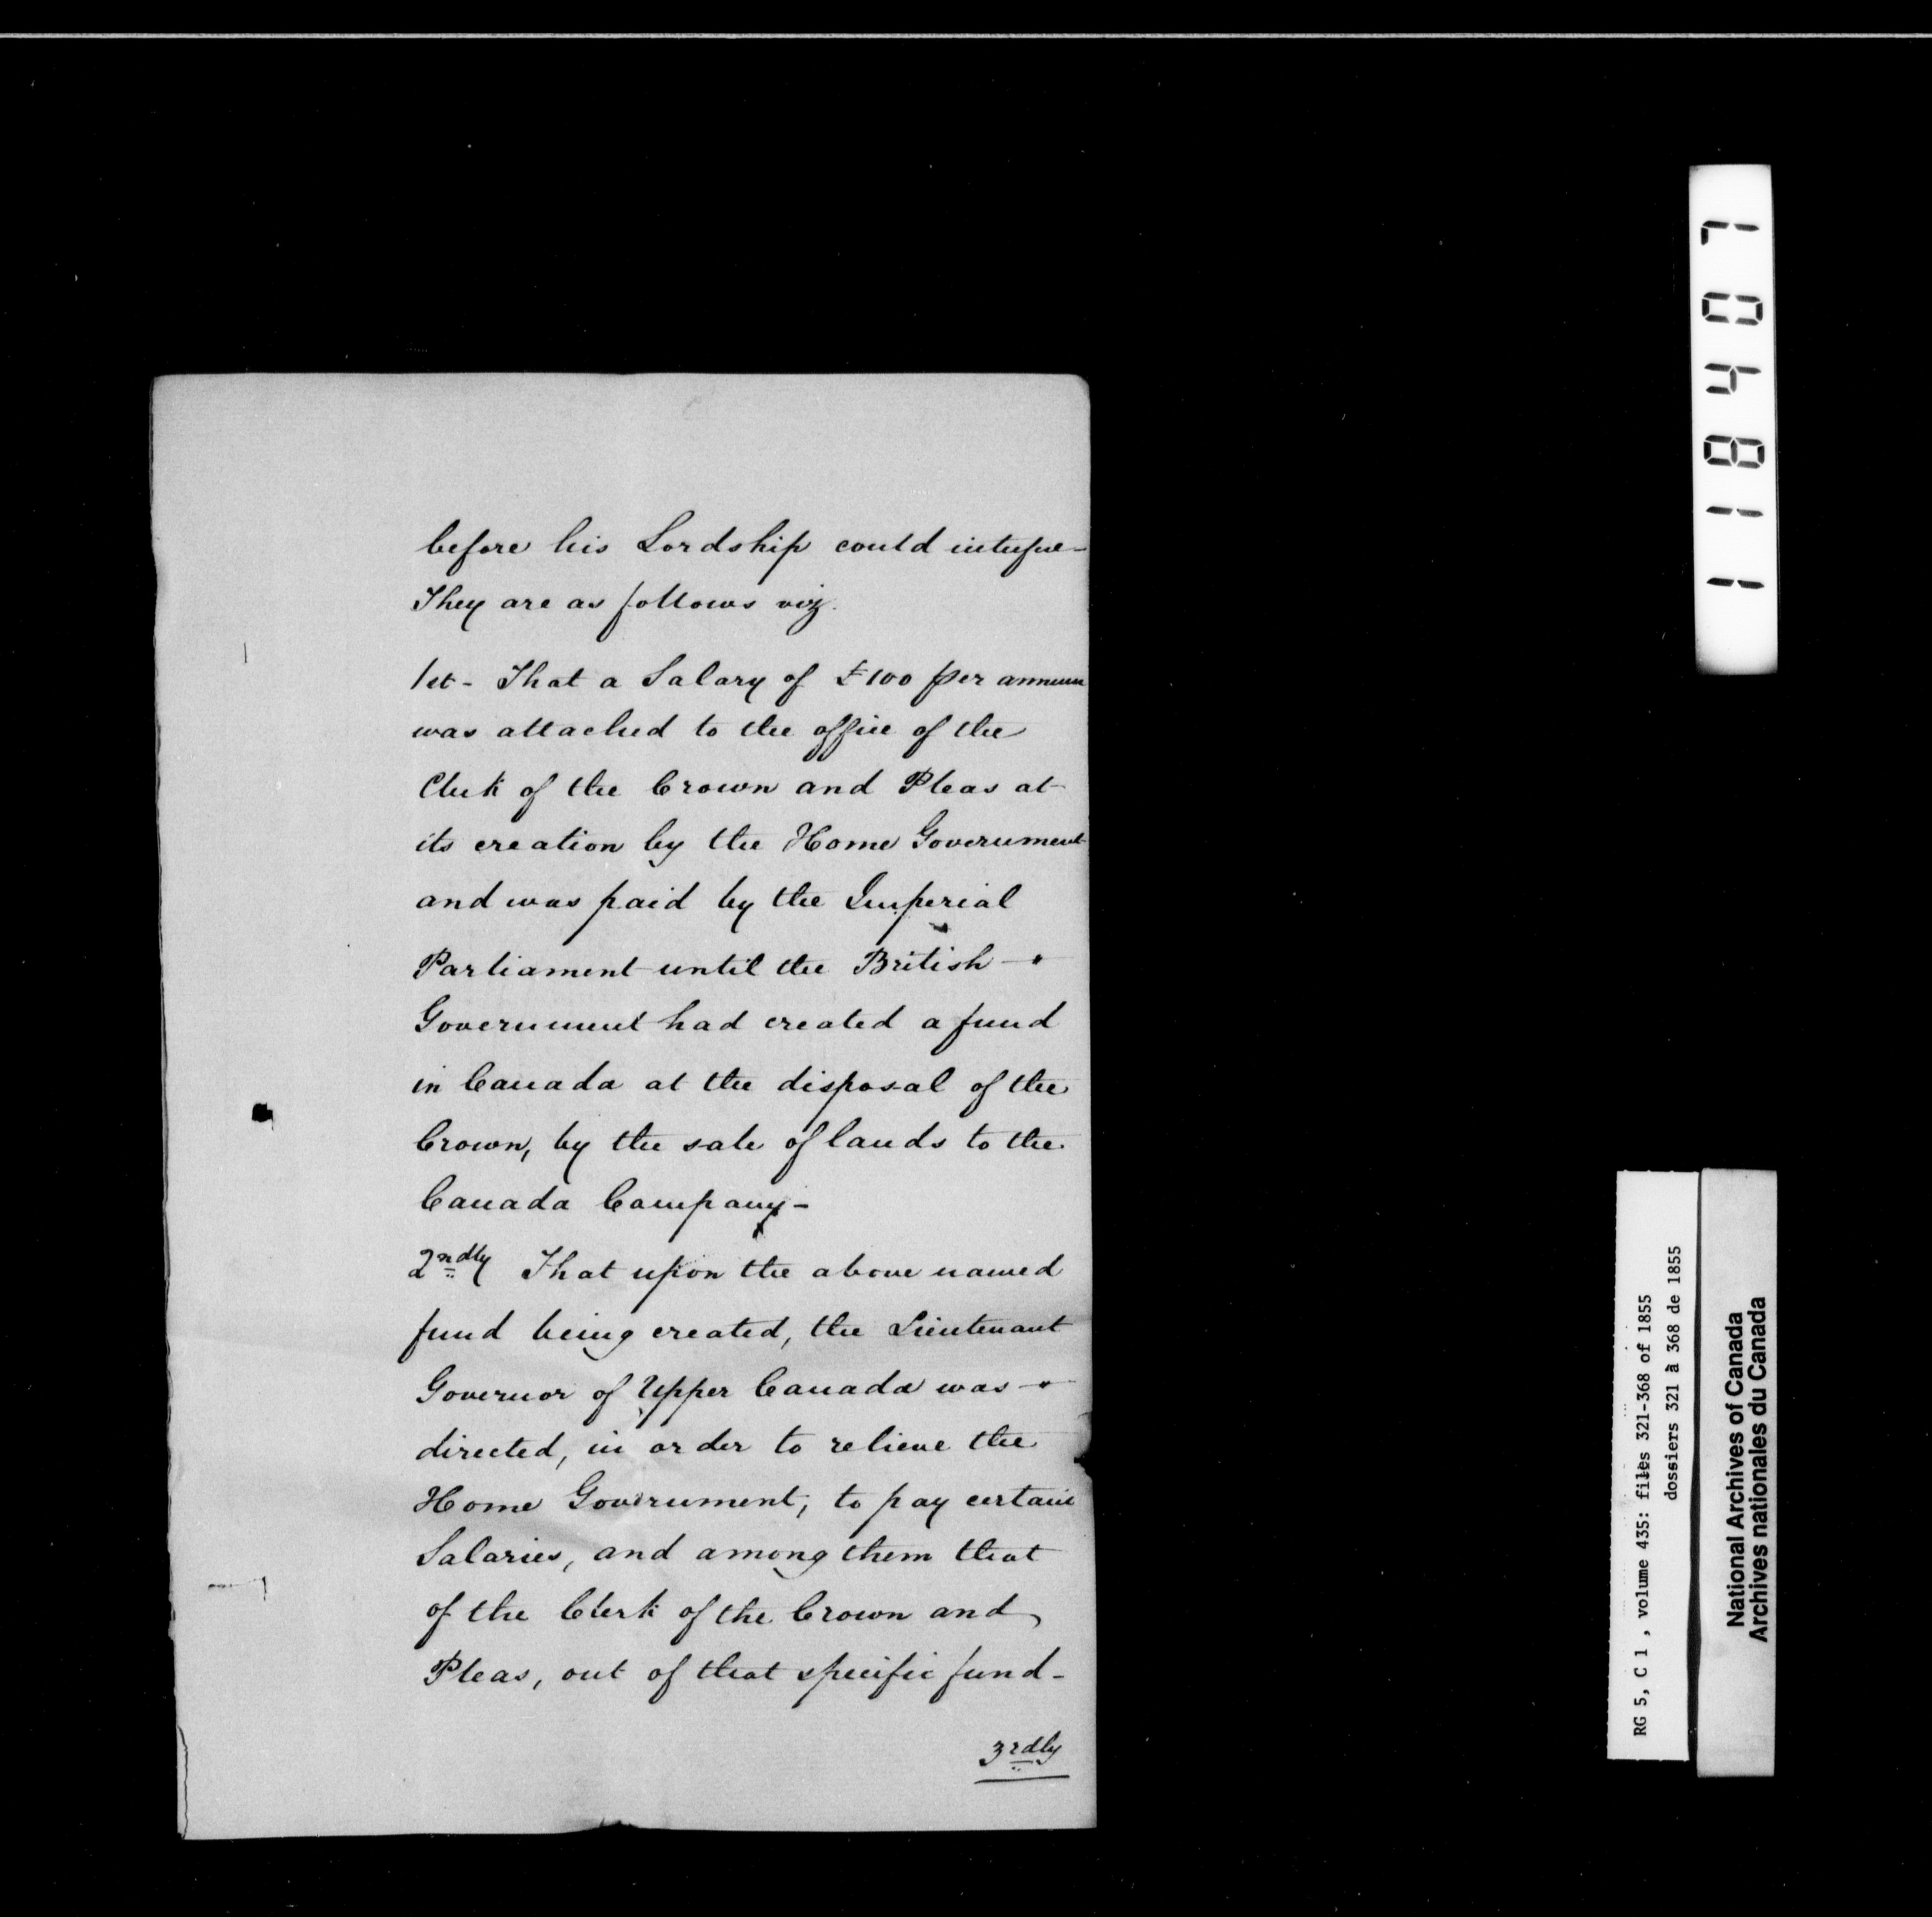 before his Lordship could interfere-
They are as follows viz.
1st- That a Salary of £100 per annum
was attached to the office of the
Clerk of the Crown and Pleas at
its creation by the Home Government
and was paid by the Imperial
Parliament until the British
Government had created a fund
in Canada at the disposal of the
Crown, by the sale of lands to the
Canada Company-
2ndly That upon the above named
fund being created, the Lieutenant
Governor of Upper Canada was
directed, in order to relieve the
Home Government, to pay certain
Salaries, and among them that
of the Clerk of the Crown and
Pleas, out of that specific fund-
3rdly
118407
RG 5, C 1 , volume 435: files 321-368 of 1855
dossiers 321 à 368 de 1855
National Archives of Canada
Archives nationales du Canada